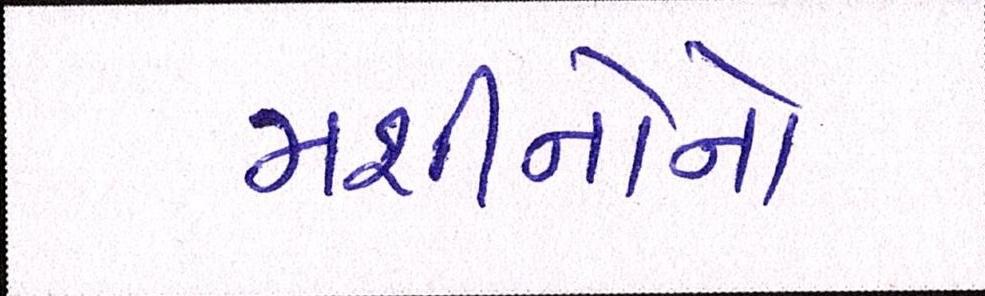 મશીનોનો